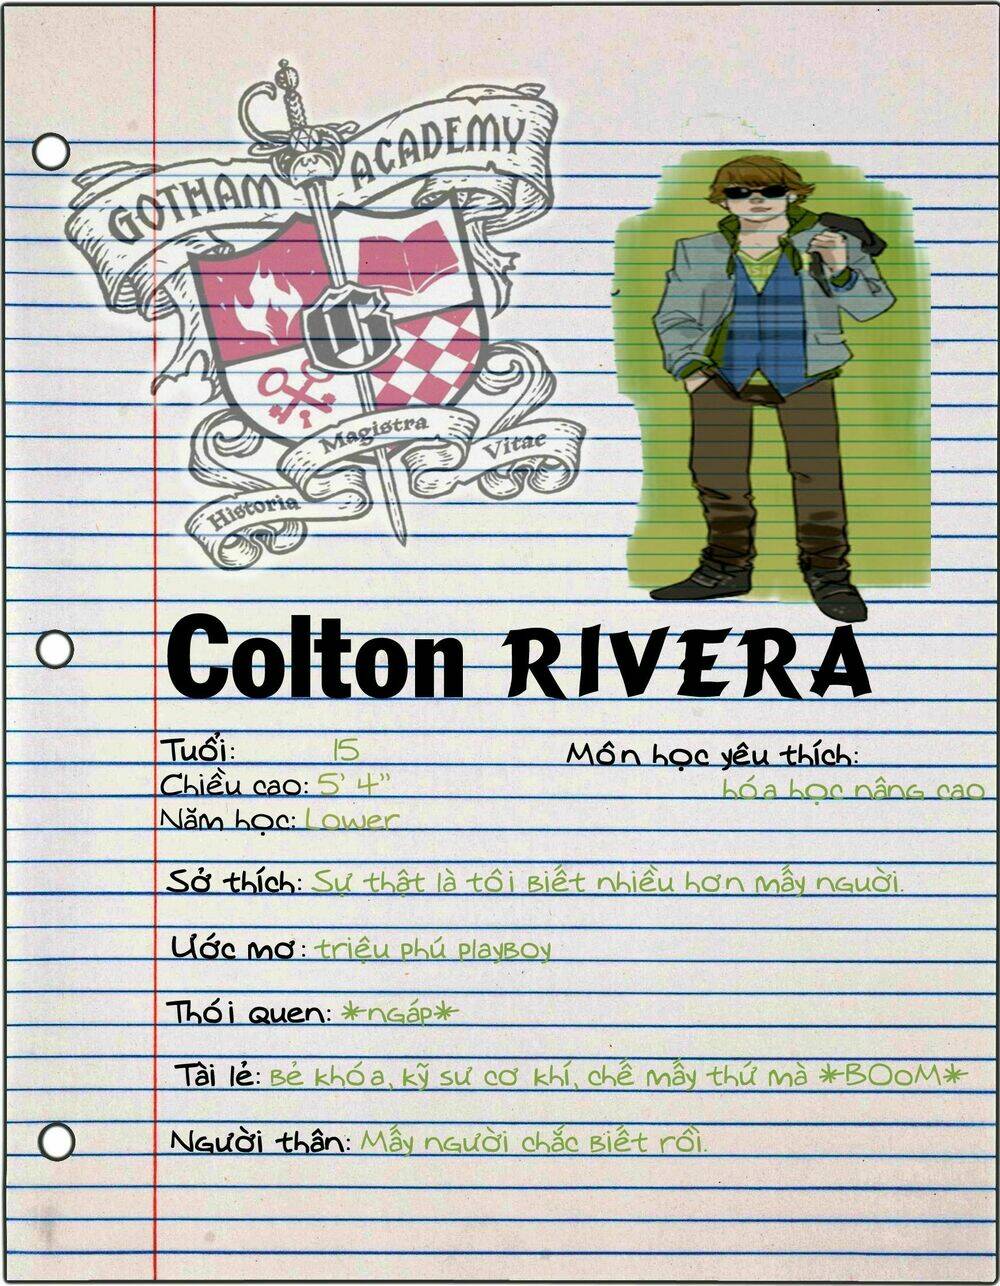 GOTHAM ACADEMY
Historia Magistra Vitae
Colton RIVERA
Tuổi: 15
Chiều cao: 5' 4"
Năm học: Lower
Môn học yêu thích:
hóa học nâng cao
Sở thích: Sự thật là tôi biết nhiều hơn mấy nguời.
Ước mơ: triệu phú playboy
Thói quen: *ngáp*
Tài lẻ: Bẻ khóa, kỹ sư cơ khí, chế mấy thứ mà *BOoM*
Người thân: Mấy người chắc biết rồi.